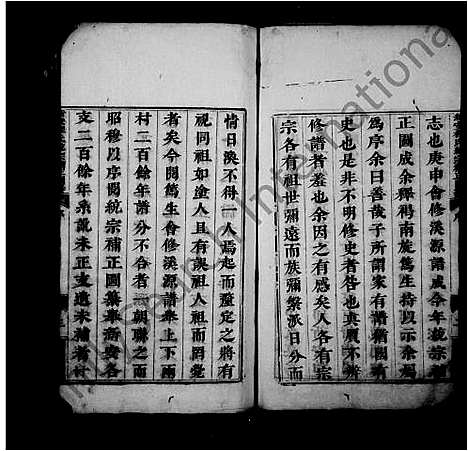 志也庚申會修溪源譜成今年統宗補
正圖成余釋褐南旋篤生持以示余焉
為序余曰善哉子所謂家有譜猶國有
史也是非不明修史者咎也真贋不辨
修譜者羞也余因之有感矣人各有宗
宗各有祖世彌遠而族彌繁派日分而
情日渙不得一人焉起而釐定之將有
視同祖如塗人且有誤祖人祖而罔覺
者矣今閱篤生會修溪源譜舉上下兩
村二百餘年譜分不合者一朝聯之而
昭穆以序閱統宗補正圖彙舉商與各
支三百餘年系訛未正支遺未補者